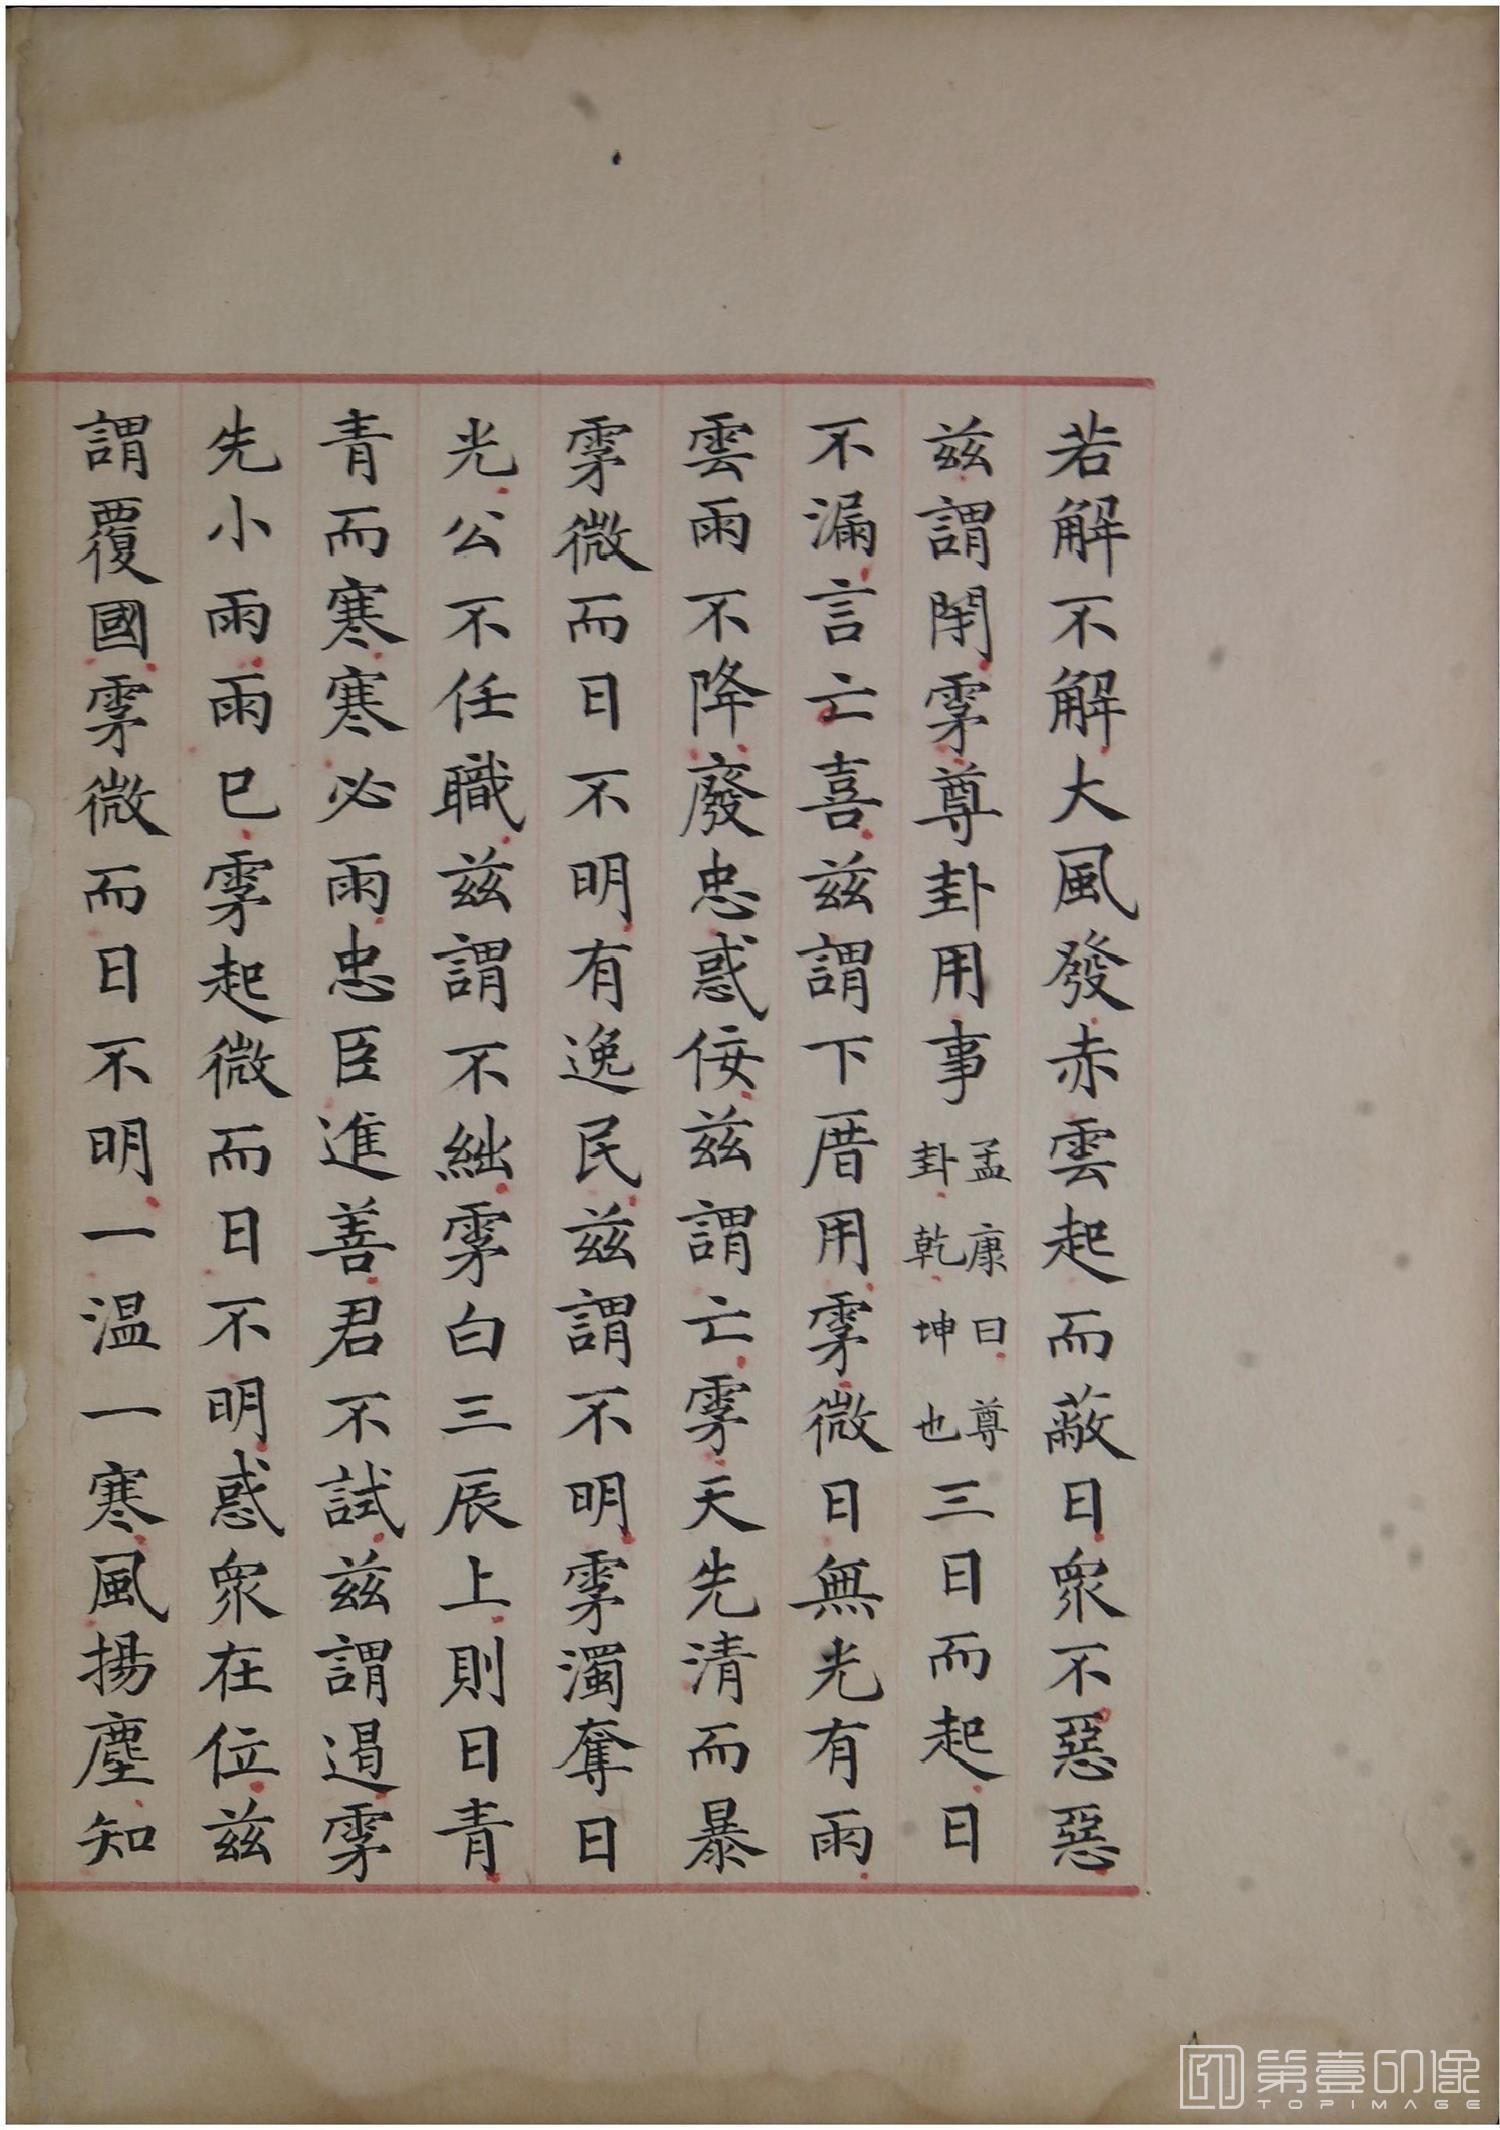 若解不解大風發赤雲起而蔽日衆不惡惡
兹謂閇雺尊卦用事孟康曰尊卦乾坤也三日而起日
不漏言亡喜兹謂下厝用雺微日無光有雨
雲雨不降廢忠惑佞兹謂亡雺天先清而暴
雺微而日不明有逸民兹謂不明雺濁奪日
光公不任職兹謂不絀雺白三辰上則日青
青而寒寒必雨忠臣進善君不試兹謂遏雺
先小雨雨已雺起微而日不明惑衆在位兹
謂覆國雺微而日不明一温一寒風揚塵知
第壹印像
TOPIMAGE